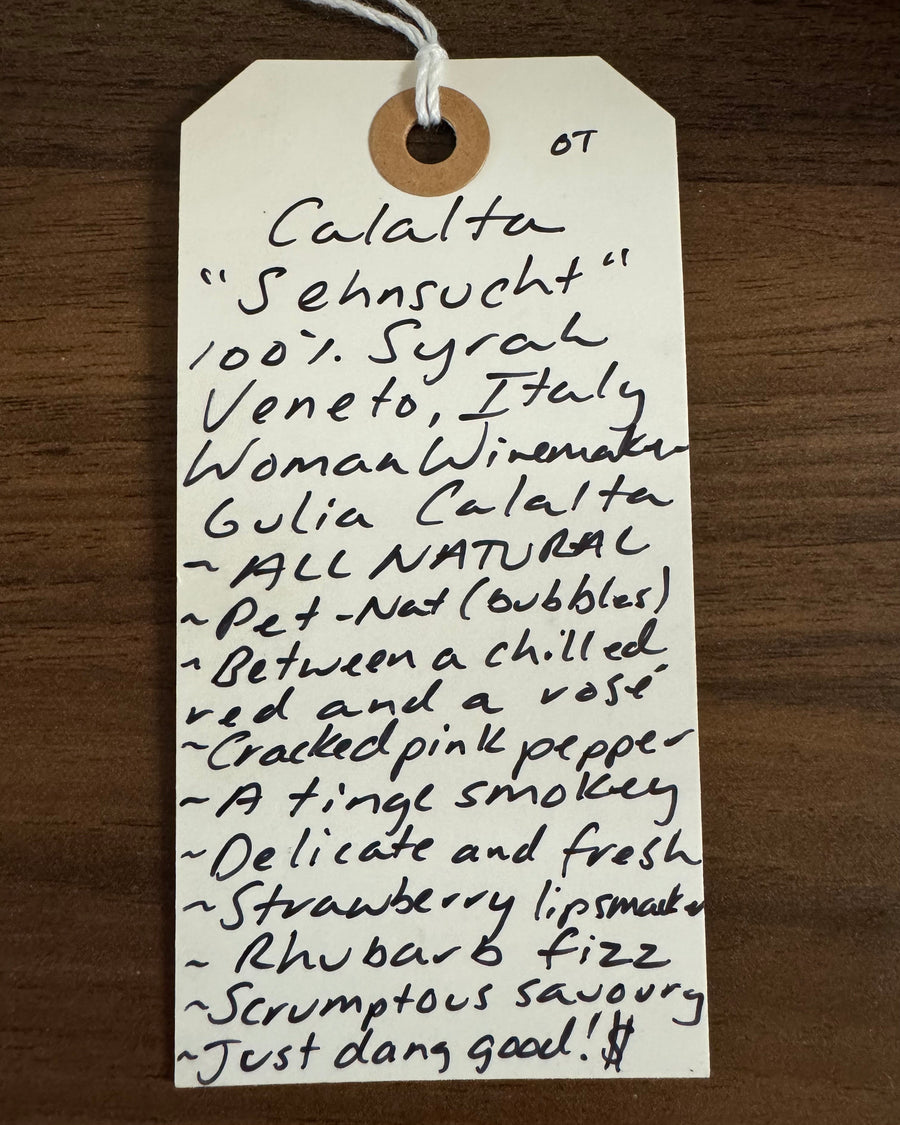 OT
Calalta
"Sehnsucht"
100% Syrah
Veneto, Italy
Woman Winemaker
Gulia Calalta
~ ALL NATURAL
~ Pet-Nat (bubbles)
~ Between a chilled
red and a rosé
~ Cracked pink pepper
~ A tinge smokey
~ Delicate and fresh
~ Strawberry lipsmacker
~ Rhubarb fizz
~ Scrumptous savoury
~ Just dang good! $